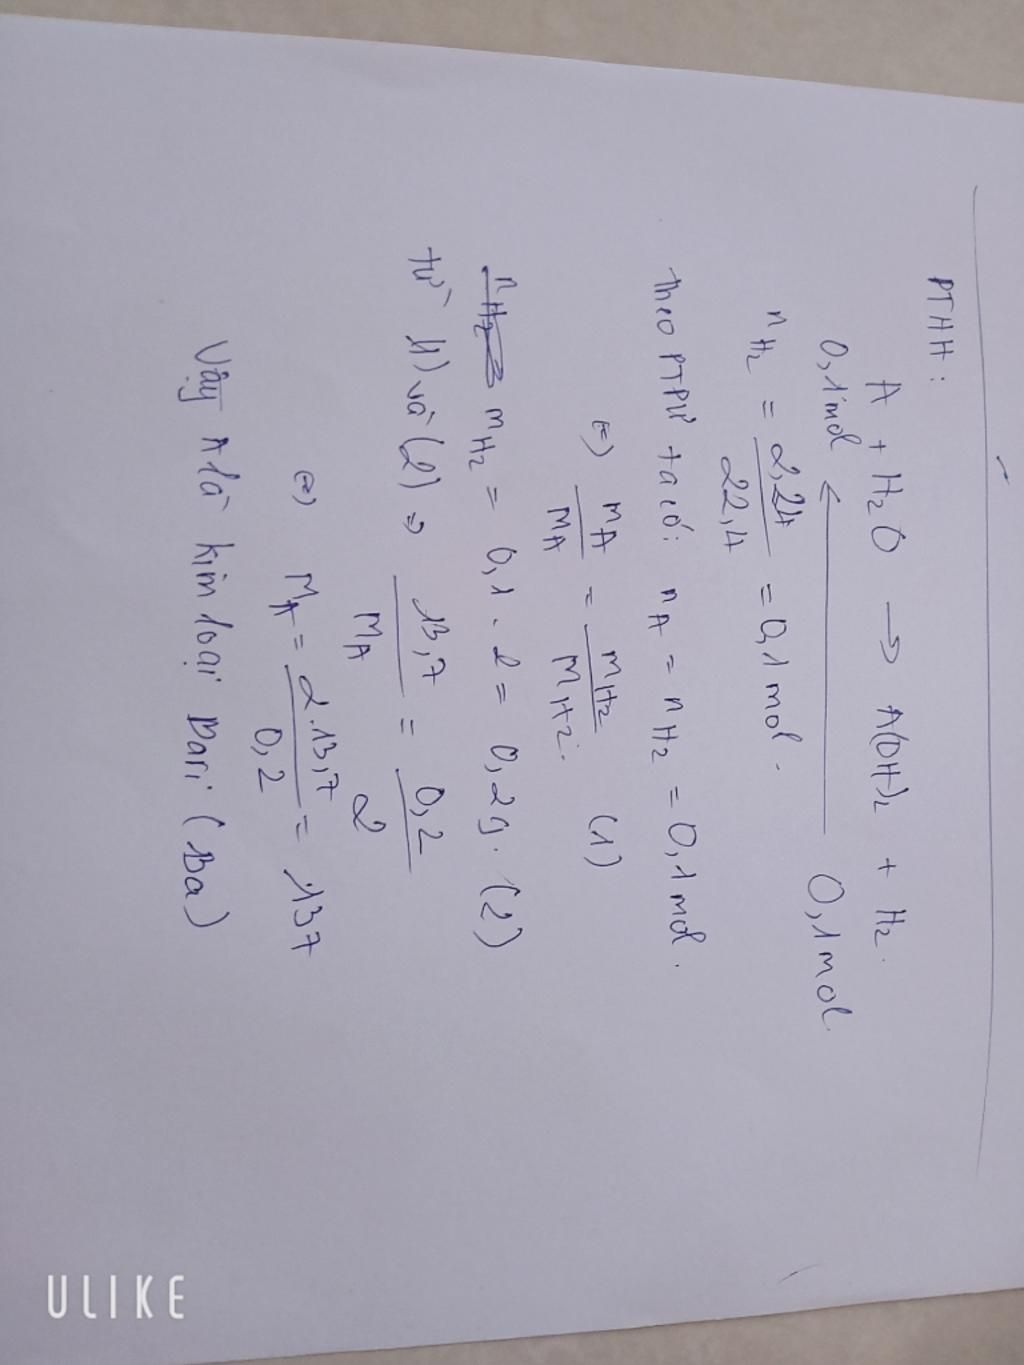 PTHH:
A + H2O → A(OH)2 + H2.
0,1mol ← 0,1mol
nH2 = 2,24/22,4 = 0,1mol.
Theo PTPƯ ta có: nA = nH2 = 0,1mol.
(=) mA/MA = mH2/MH2. (1)
mH2 = 0,1.2 = 0,2g. (2)
từ (1) và (2) ⇒ 13,7/MA = 0,2/2
(=) MA = 2.13,7/0,2 = 137
Vậy A là kim loại Bari (Ba)
ULIKE